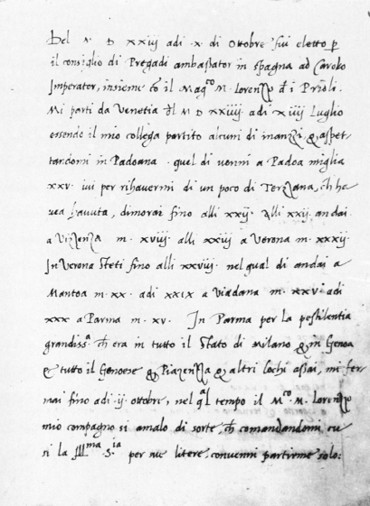 Del M D XXIIJ adi .X. di Ottobre fui eletto p
il consiglio di Pregadi ambassator in spagna ad Carolo
Imperator, insieme cō il Mag.co M. Lorenzo d i Prioli.
Mi parti da Venetia dl M D XXIIIJ adi XIIIJ Luglio
essendo il mio collega partito alcuni dì inanzi, & aspet
tandomi in Padoana. quel dì venni a Padoa miglia
XXV. ivi per rihavermi di un poco di Terzana, ch ha
vea havuta, dimorai fino alli XXIJ. alli XXIJ. andai
a Vizenza m. XVIIJ alli XXIIJ a Verona m. XXXIJ.
In Verona steti fino alli XXVIIJ. nel qual dì andai a
Mantoa m. XX. adi XXIX a Viadana m. XXV. adi
XXX a Parma m. XV. In Parma per la pestilentia
grandiss.a ch era in tutto il Stato di Milano & in Genoa
& tutto il Genoese & Piazenza & altri lochi assai, mi fer
mai fino adi .IJ. ottobre, nel ql tempo il M.co M. Lorenzo
mio compagno si amalo di sorte, ch comandandomi cu
si la Ill.ma S.ia per sue litere, convenni partirme solo: